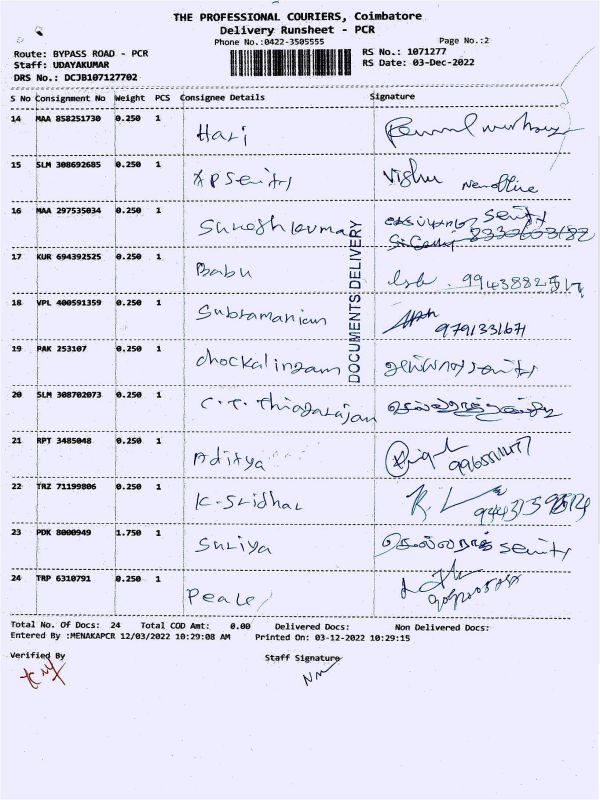 THE PROFESSIONAL COURIERS, Coimbatore
Delivery Runsheet - PCR
Phone No.:0422-3505555 Page No.:2
Route: BYPASS ROAD - PCR RS No.: 1071277
Staff: UDAYAKUMAR RS Date: 03-Dec-2022
DRS No.: DCJB107127702
S No Consignment No Weight PCS Consignee Details Signature
14 MAA 858251730 0.250 1 Hari
15 SLM 308692685 0.250 1 AP Senitry Vishu
16 MAA 297535034 0.250 1 Sureshkumar
17 KUR 694392525 0.250 1 Babu
18 VPL 400591359 0.250 1 Subramanian 9791331671
19 PAK 253107 0.250 1 chockalingam
20 SLM 308702073 0.250 1 C.T. Thiagarajan
21 RPT 3485048 0.250 1 Aditya
22 TRZ 71199806 0.250 1 K. Sridhar
23 PDK 8000949 1.750 1 Suriya
24 TRP 6310791 0.250 1 Peace
DOCUMENTS DELIVERY
Total No. Of Docs: 24 Total COD Amt: 0.00 Delivered Docs: Non Delivered Docs:
Entered By :MENAKAPCR 12/03/2022 10:29:08 AM Printed On: 03-12-2022 10:29:15
Verified By Staff Signature